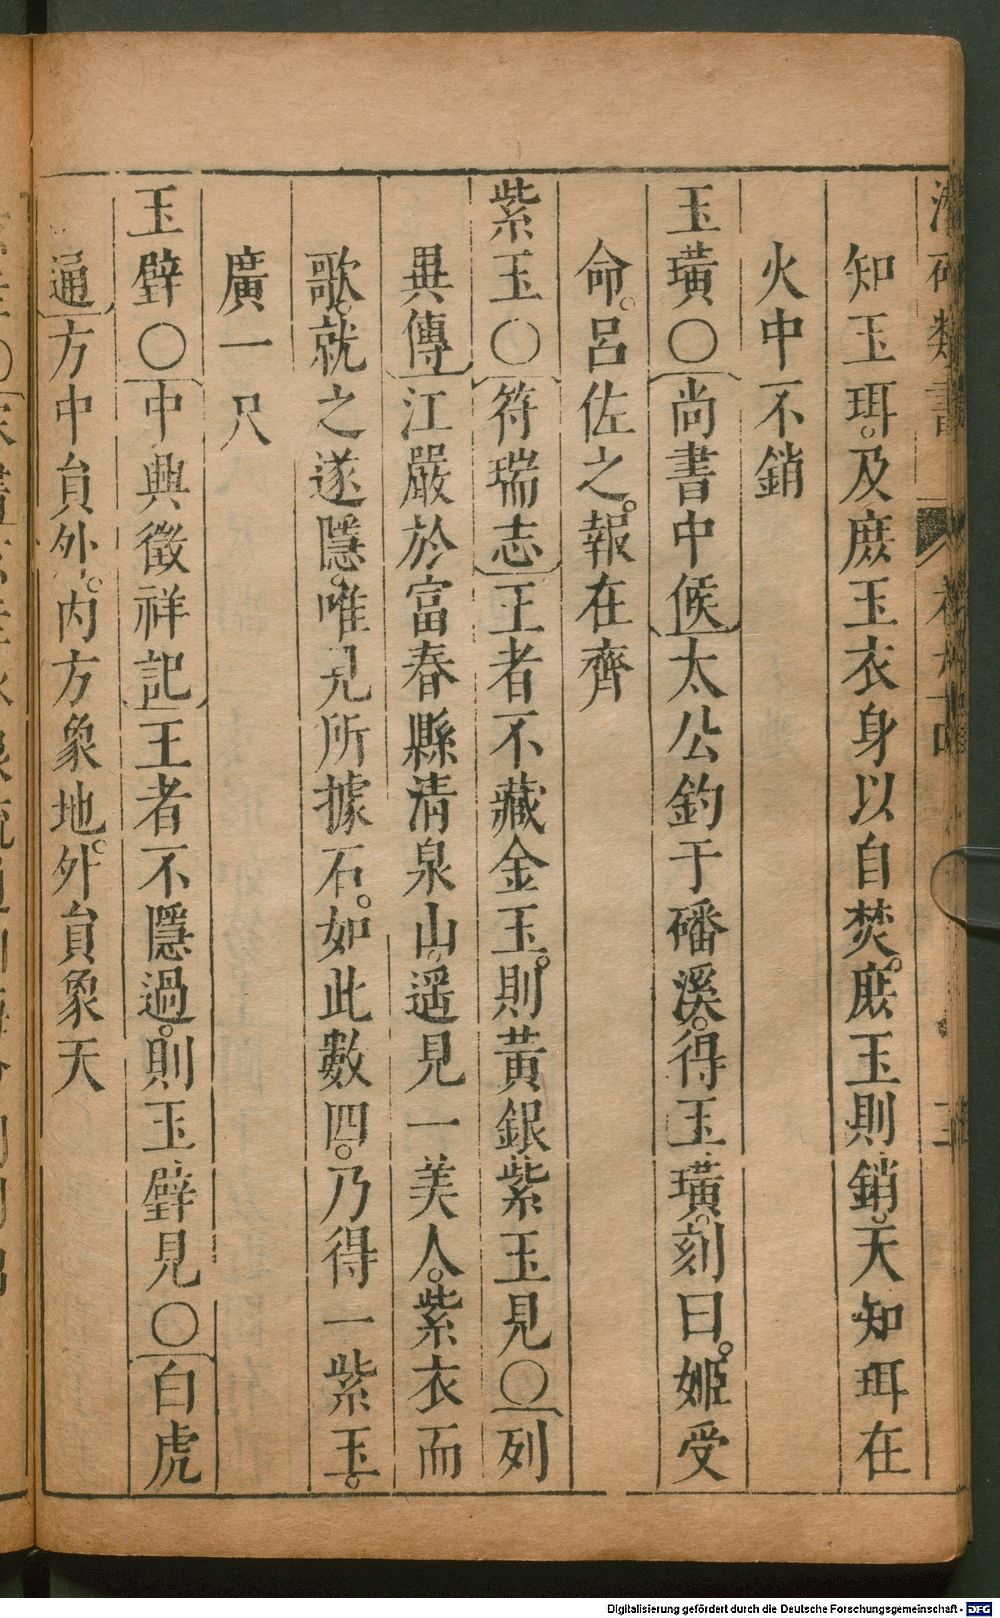 類書
知玉珥。及庶玉衣身以自焚。庶玉則銷。天知珥在
火中不銷
玉璜〇尚書中候太公釣于磻溪。得玉璜。刻曰。姬受
命。呂佐之。報在齊
紫玉〇符瑞志王者不藏金玉。則黃銀紫玉見〇列
異傳江嚴於富春縣清泉山。遥見一美人。紫衣而
歌。就之遂隱。唯見所據石。如此數四。乃得一紫玉。
廣一尺
玉璧〇中興徵祥記王者不隱過。則玉璧見〇白虎
通方中員外。内方象地。外員象天
Digitalisierung gefördert durch die Deutsche Forschungsgemeinschaft - DFG